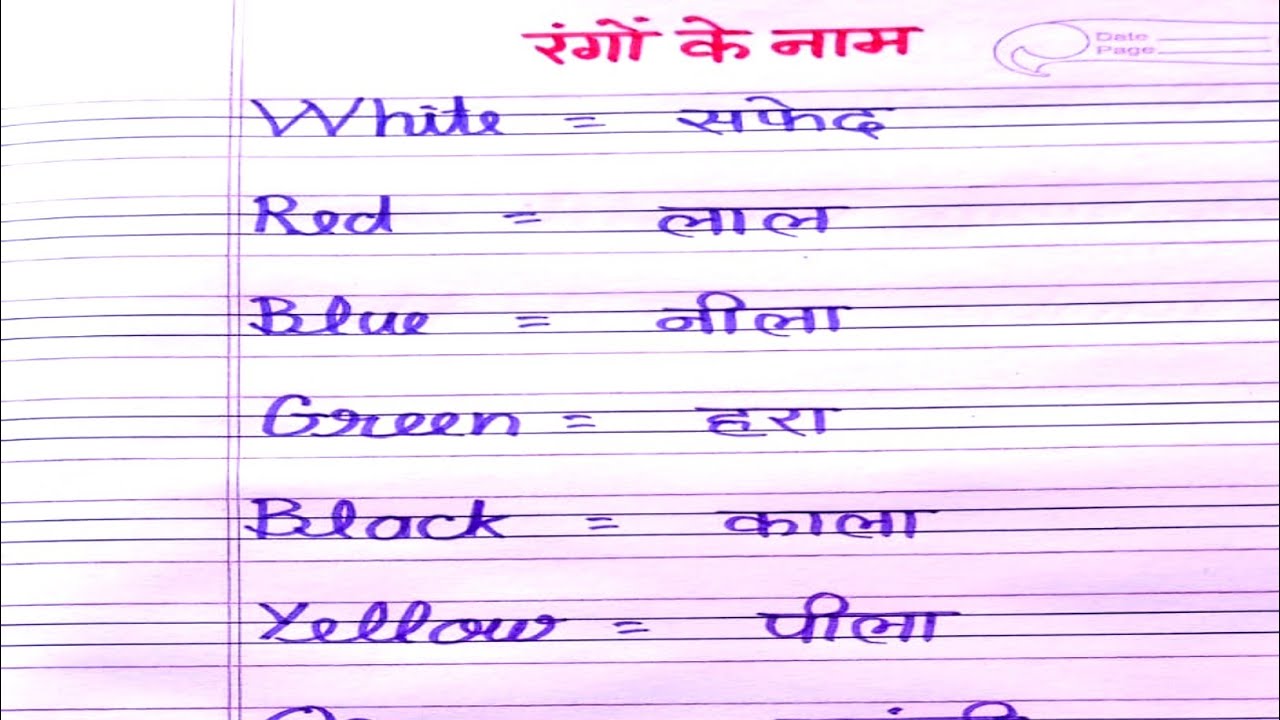 रंगों के नाम
Date
Page
White = सफेद
Red = लाल
Blue = नीला
Green = हरा
Black = काला
Yellow = पीला